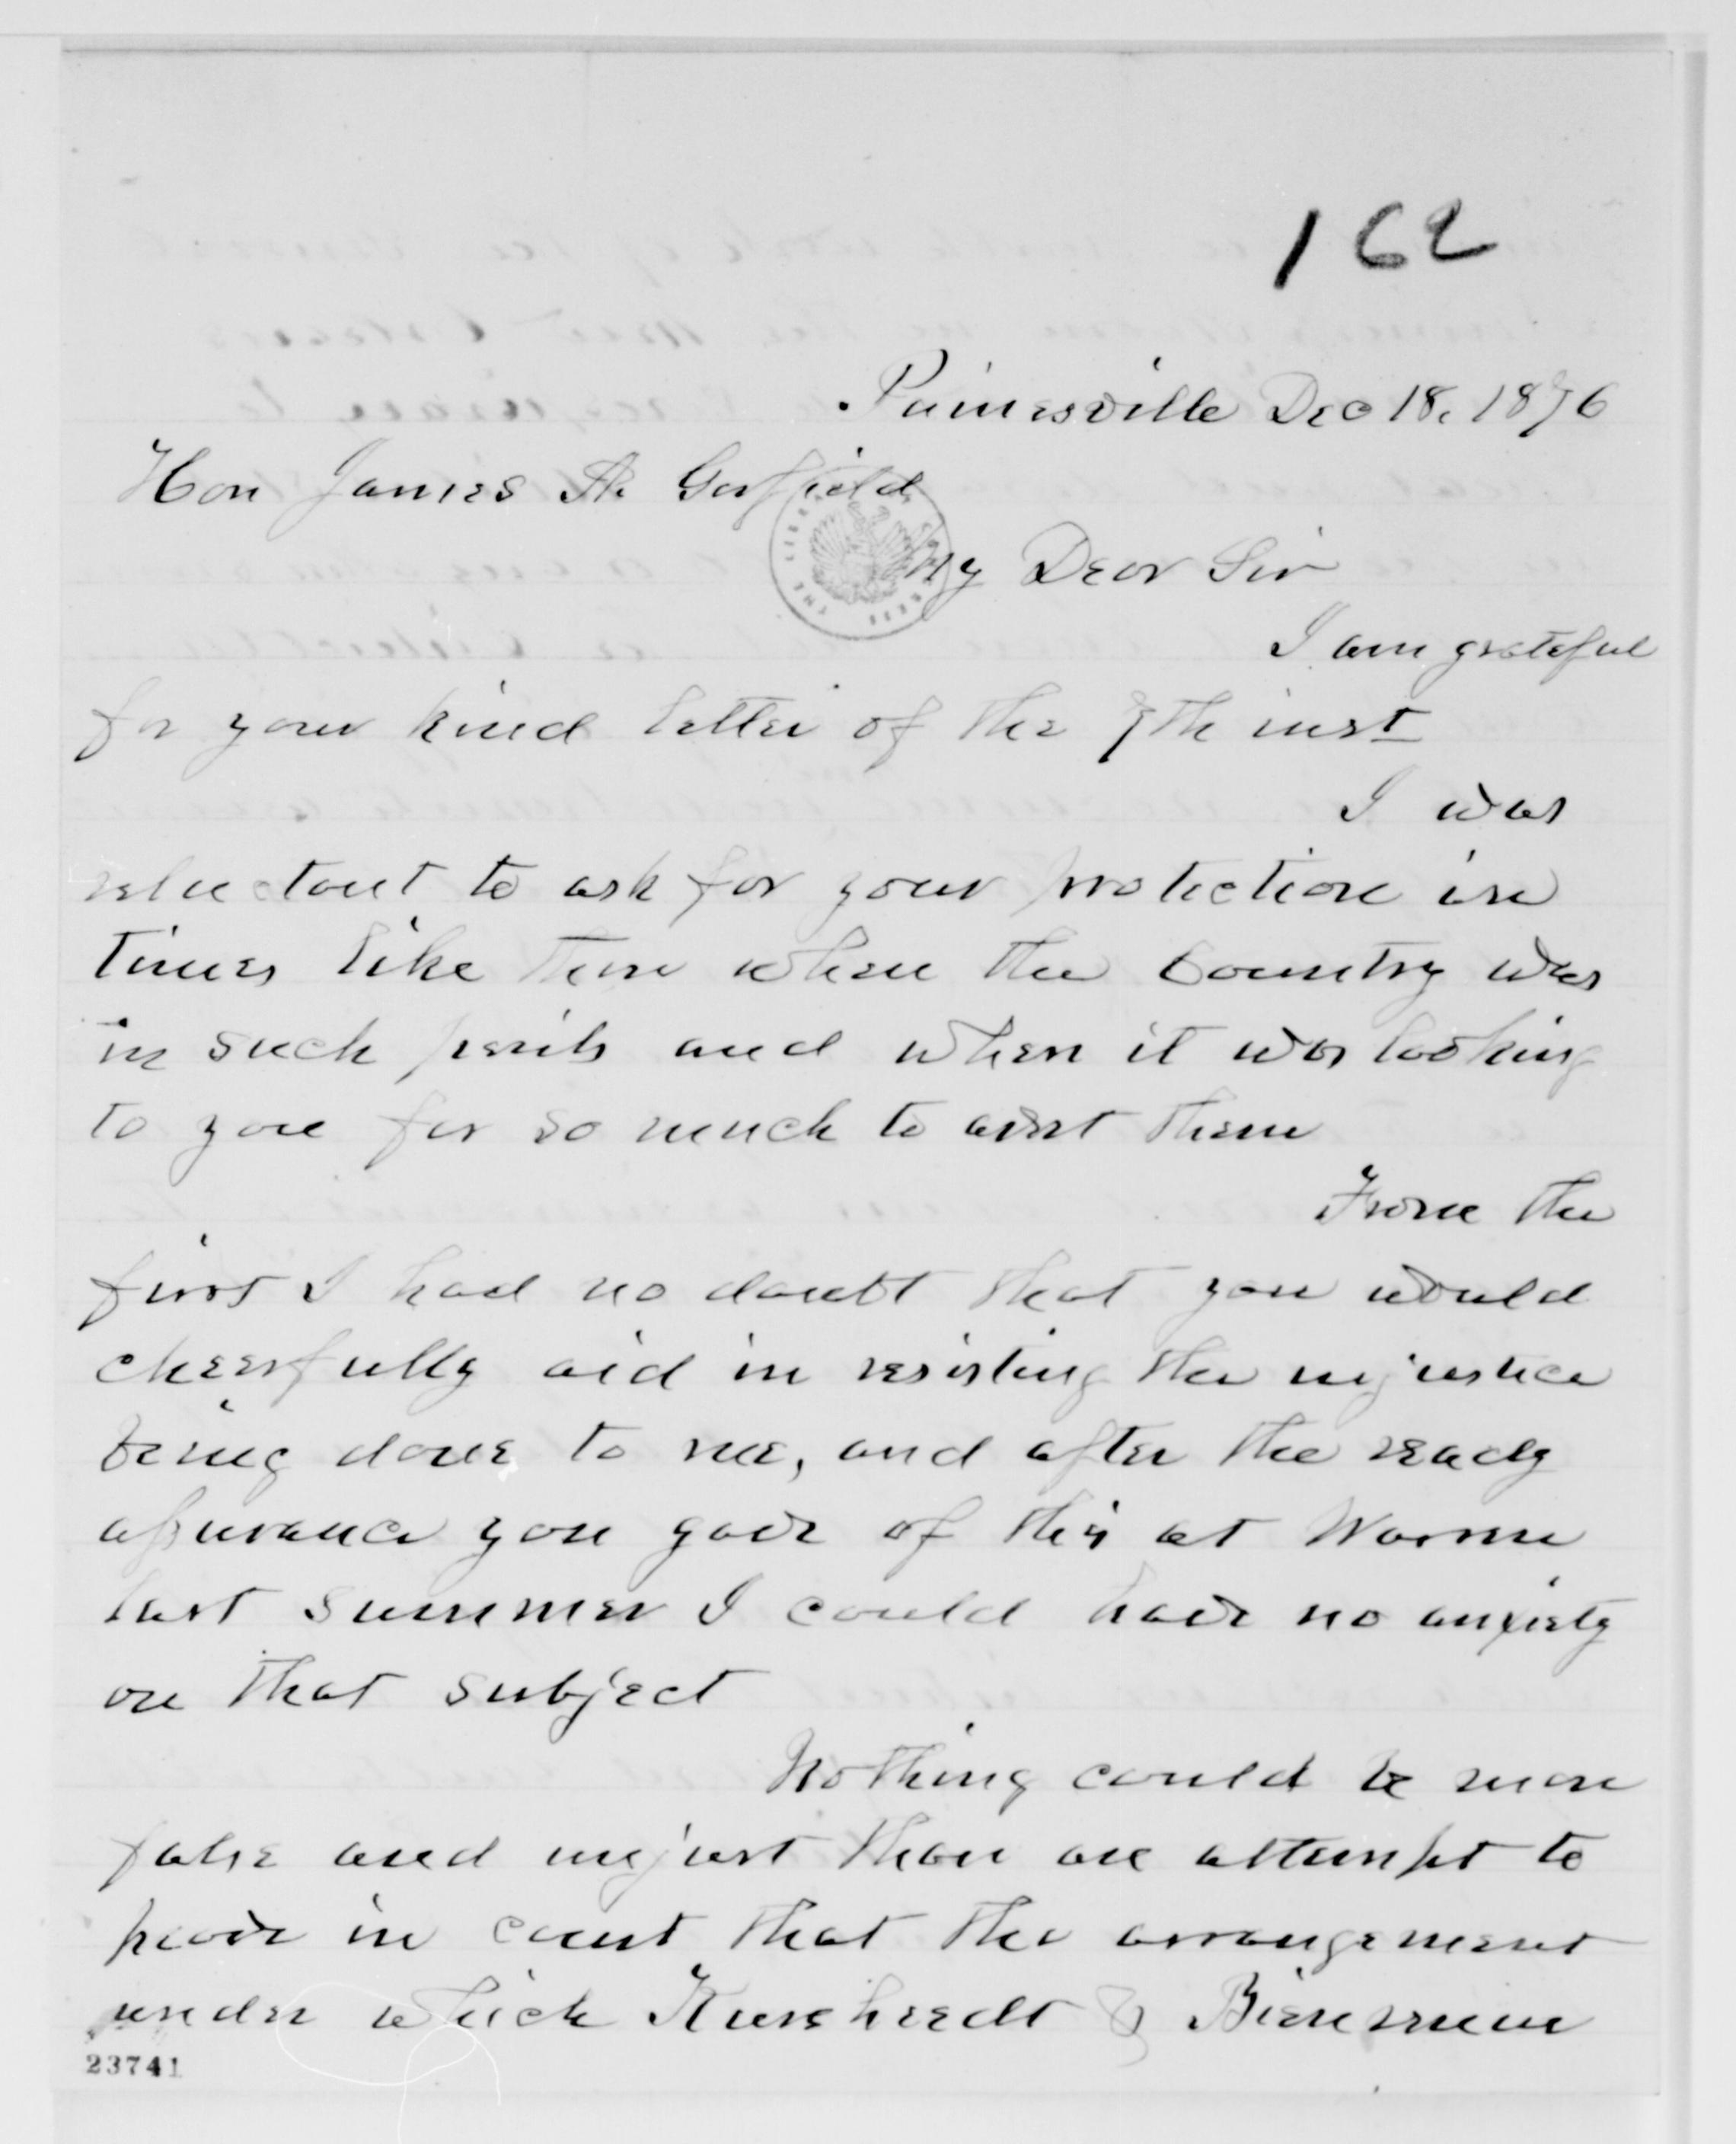 162
Painesville Dec 18. 1876
Hon James A. Garfield
My Dear Sir
I am grateful
for your kind letter of the 7th inst
I was
reluctant to ask for your protection in
times like these when the Country was
in such perils and when it was looking
to you for so much to avert them
From the
first I had no doubt that you would
cheerfully aid in resisting the injustice
being done to me, and after the ready
assurance you gave of this at Warren
last summer I could have no anxiety
on that subject
Nothing could be more
false and unjust than an attempt to
prove in court that the arrangement
under which Kursheedt &
23741